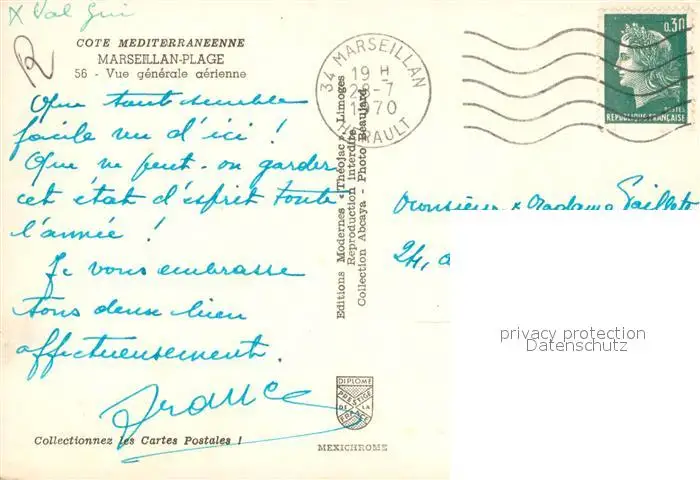 x Val
R
COTE MEDITERRANEENNE
MARSEILLAN-PLAGE
56 - Vue générale aérienne
Que tout semble
facile vu d'ici !
Que ne peut-on garder
cet état d'esprit toute
l'année !
Je vous embrasse
tous deux bien
affectueusement.
France
Collectionnez les Cartes Postales !
Editions Modernes « Théojac », Limoges
Reproduction Interdite
Collection Abcaya - Photo Beaujard
DIPLOME
PRESTIGE
DE LA
FRANCE
MEXICHROME
34 MARSEILLAN
19 H
28-7
1970
HERAULT
0,30
POSTES
REPUBLIQUE FRANÇAISE
Monsieur & Madame
24,
privacy protection
Datenschutz